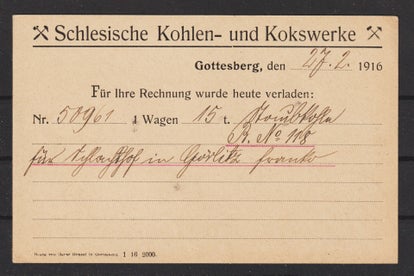 Schlesische Kohlen- und Kokswerke
Gottesberg, den 27. 2. 1916
Für Ihre Rechnung wurde heute verladen:
Nr. 50961 1 Wagen 15 t. Staubkohle
R. No 118
für Schlachthof in Görlitz franko
1 16 2000.